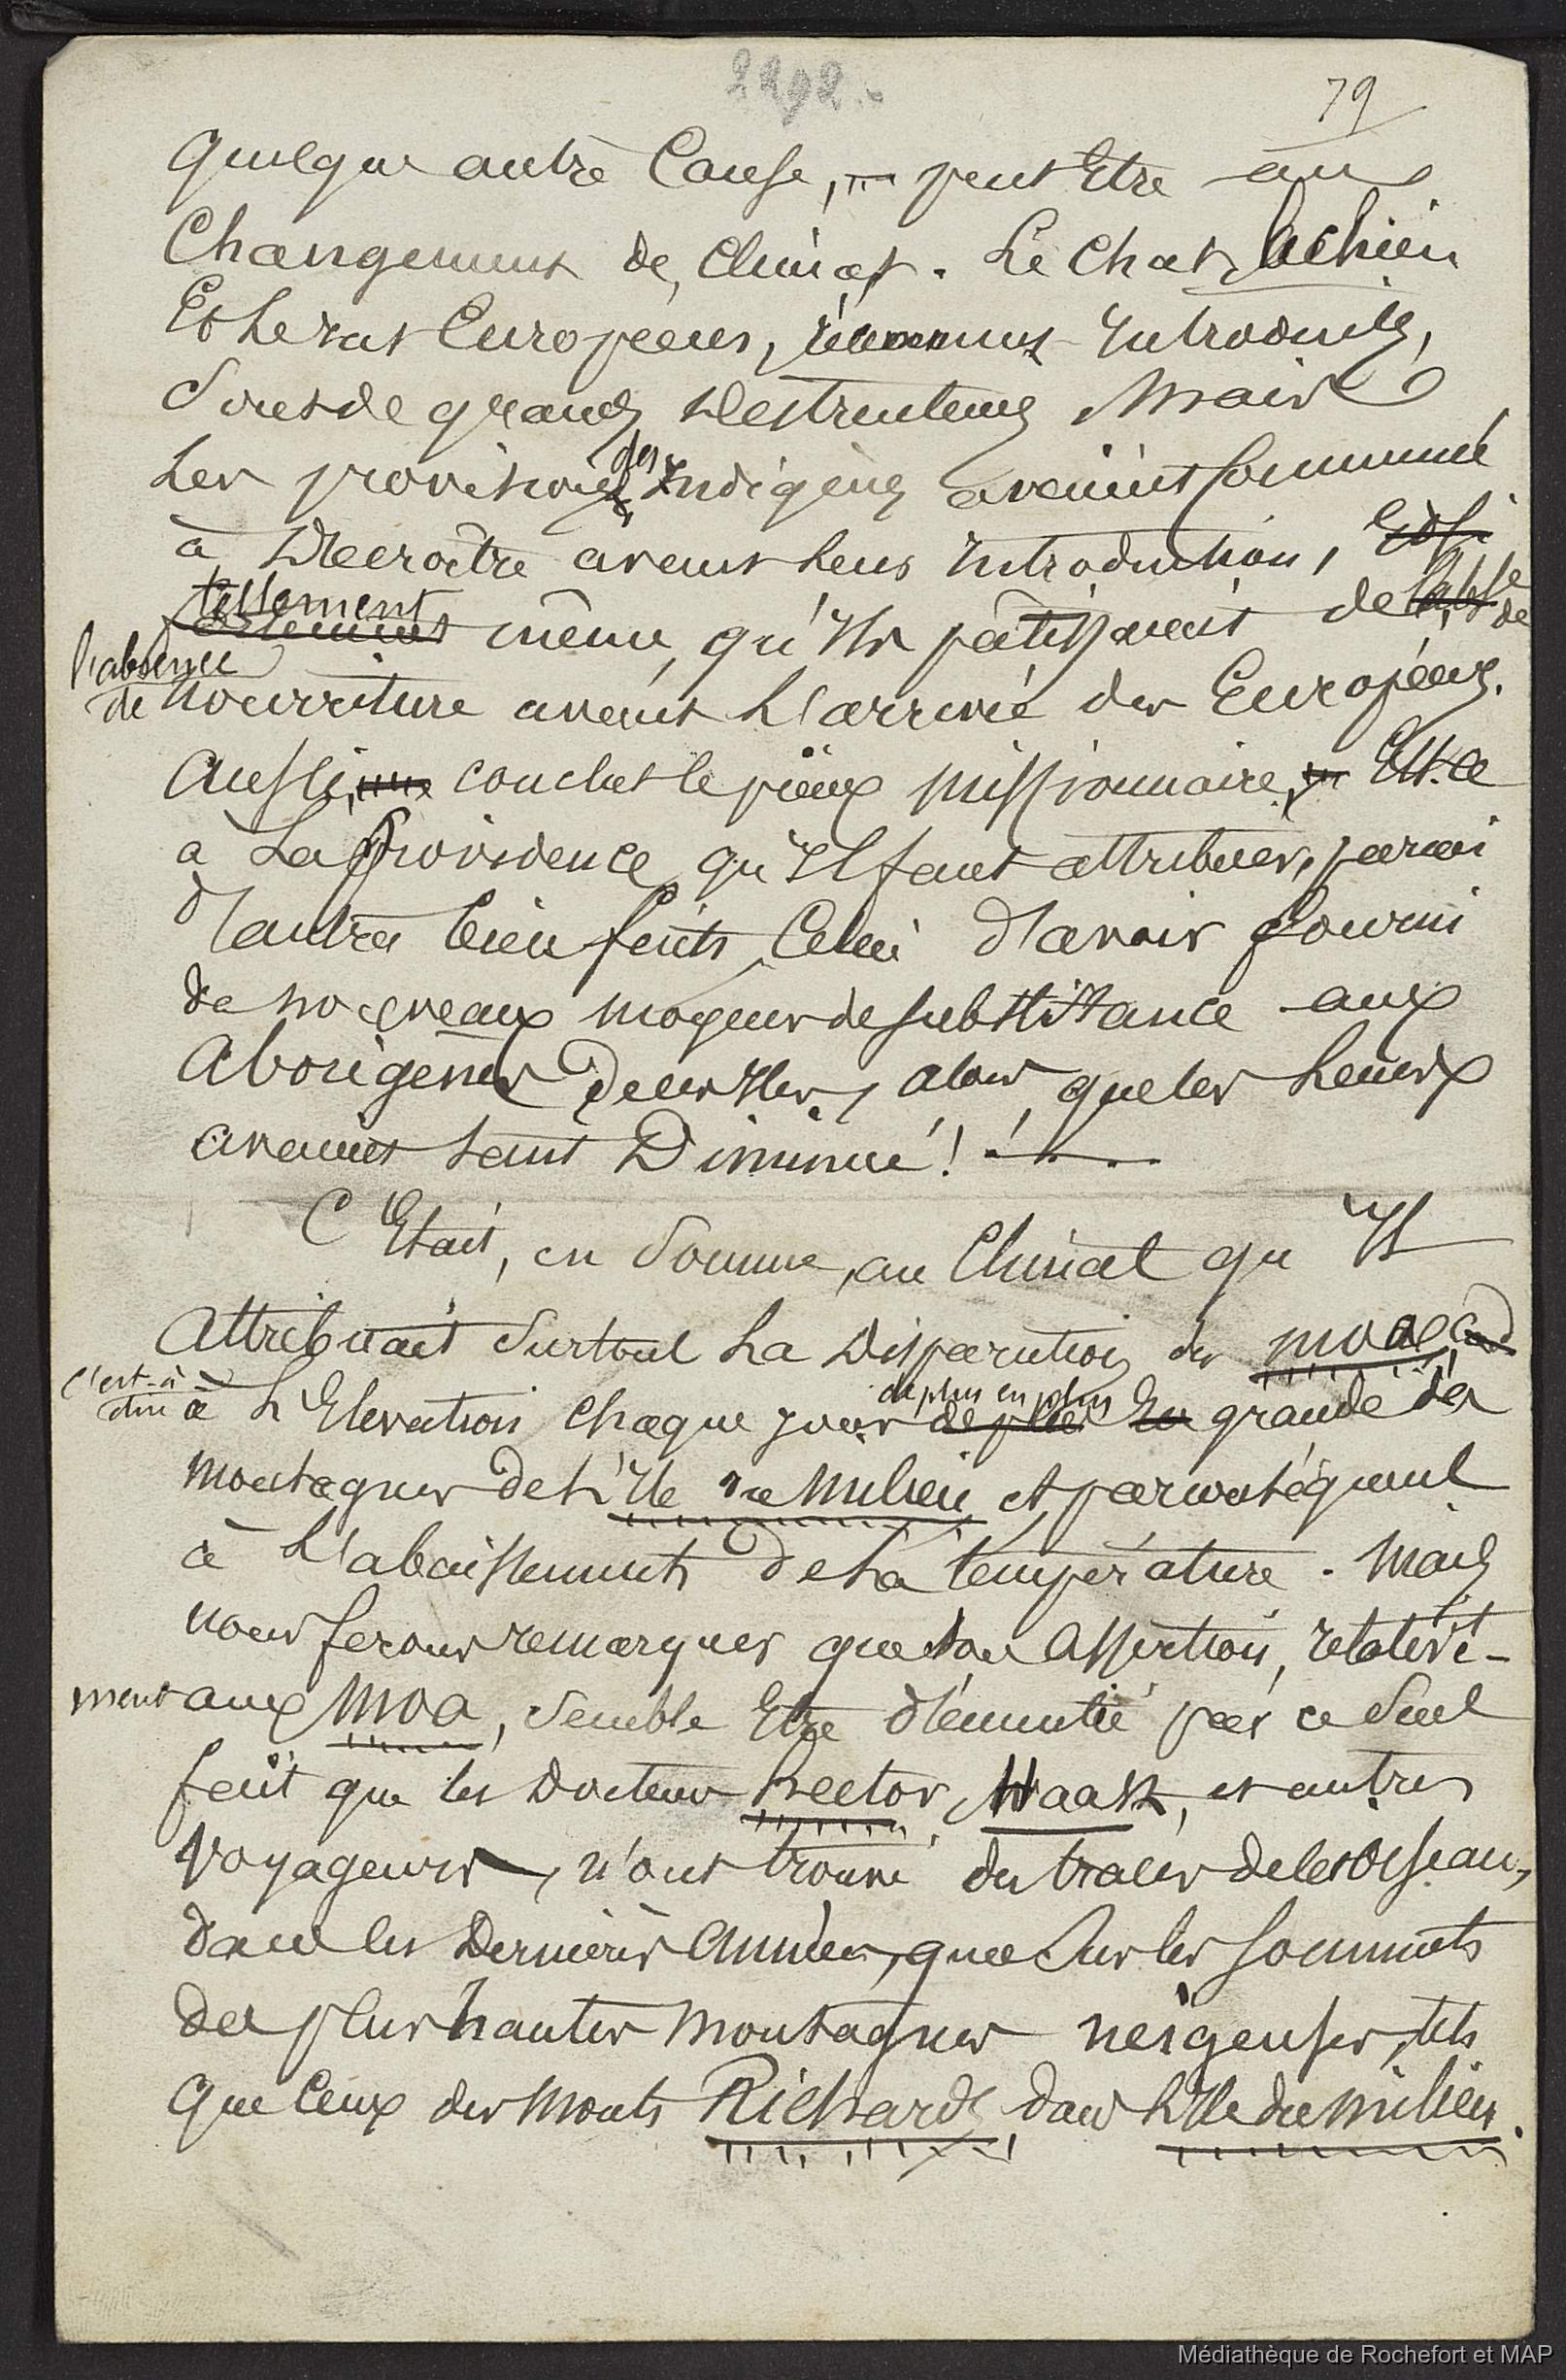 2292.
79
quelque autre Cause, peut Etre au
Changement de Climat. Le Chat, le chien
Et Le rat Européens, récemment Introduits,
Sont de grands Destructeurs Mais
Les provisions des Indigènes avaient Commencé
à Décroître avant Leur Introduction, Et si
tellement même, qu'Ils pâtissaient de
l'absence
de nourriture avant L'arrivée des Européens.
Aussi, conclut le pieux Missionnaire, Est-ce
à La providence qu'Il faut attribuer, parmi
d'autres bienfaits, Celui d'avoir fourni
de nouveaux moyens de subsistance aux
Aborigènes de ces Iles, alors que les Leurs
avaient tant Diminué!
C'Etait, en Somme, au Climat qu'Il
Attribuait Surtout La Disparution des moa,
c'est-à-
dire à L'Elevation Chaque jour de plus en plus grande des
montagnes de L'Ile du Milieu et par conséquent
à L'abaissement de La température. Mais
nous ferons remarquer que Son Assertion, relative-
ment aux Moa, Semble Etre démentie par ce Seul
fait que les Docteurs Hector, Haast, et autres
Voyageurs, n'ont trouvé des traces de ces oiseaux,
dans les Dernières Années, que Sur les Sommets
des plus hautes Montagnes neigeuses, tels
que Ceux des Monts Richards, dans L'Ile du Milieu.
Médiathèque de Rochefort et MAP